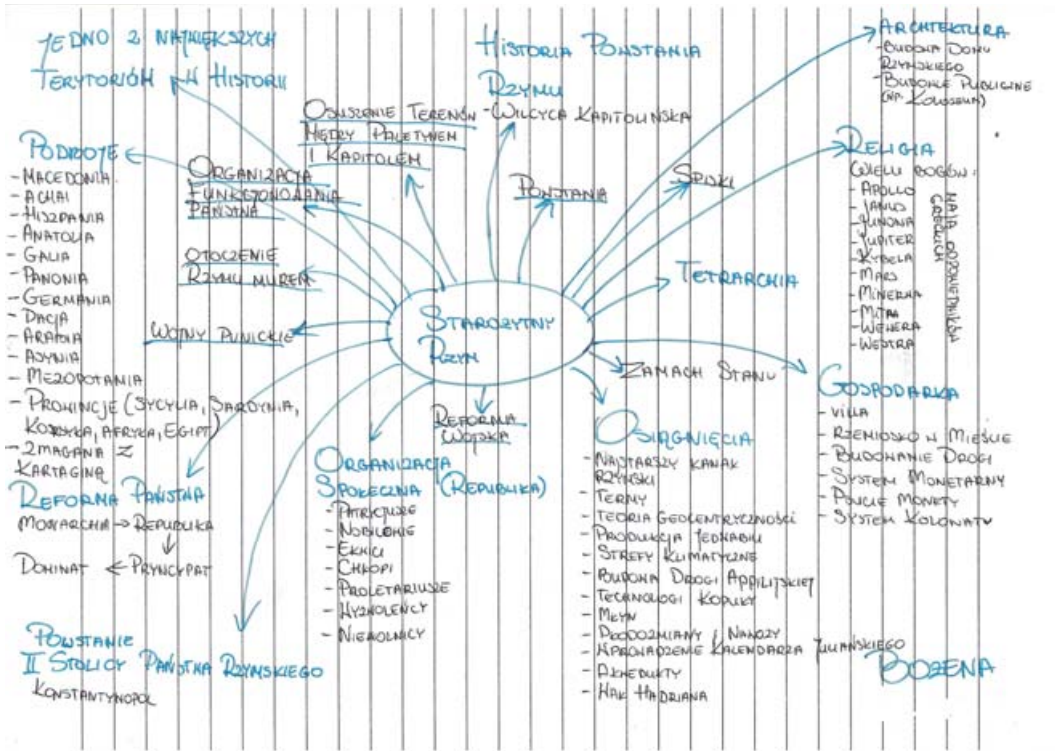 JEDNO Z NAJWIĘKSZYCH
TERYTORIÓW W HISTORII
PODBOJE
- MACEDONIA
- ACHAI
- HISZPANIA
- ANATOLIA
- GALIA
- PANONIA
- GERMANIA
- DACJA
- ARABIA
- ASYRIA
- MEZOPOTAMIA
- PROWINCJE (SYCYLIA, SARDYNIA,
KORSYKA, AFRYKA, EGIPT)
- ZMAGANIA Z
KARTAGINĄ
REFORMA PAŃSTWA
MONARCHIA → REPUBLIKA
↓
DOMINAT ← PRYNCYPAT
POWSTANIE
II STOLICY PAŃSTWA RZYMSKIEGO
KONSTANTYNOPOL
ORGANIZACJA
FUNKCJONOWANIA
PAŃSTWA
OTOCZENIE
RZYMU MUREM
WOJNY PUNICKIE
OSUSZENIE TERENÓW
MIĘDZY PALATYNEM
I KAPITOLEM
HISTORIA POWSTANIA
RZYMU
- WILCYCA KAPITOLIŃSKA
POWSTANIA
SPISKI
STAROŻYTNY
RZYM
TETRARCHIA
ZAMACH STANU
REFORMA
WOJSKA
ORGANIZACJA
SPOŁECZNA (REPUBLIKA)
- PATRYCJUSZE
- NOBILOWIE
- EKWICI
- CHŁOPI
- PROLETARIUSZE
- WYZWOLEŃCY
- NIEWOLNICY
OSIĄGNIĘCIA
- NAJSTARSZY KANAŁ
RZYMSKI
- TERMY
- TEORIA GEOCENTRYCZNOŚCI
- PRODUKCJA JEDWABIU
- STREFY KLIMATYCZNE
- BUDOWA DROGI APPIJSKIEJ
- TECHNOLOGI KOPUŁY
- MŁYN
- PŁODOZMIANY I NAWOZY
- WPROWADZENIE KALENDARZA JULIAŃSKIEGO
- AKWEDUKTY
- WAŁ HADRIANA
ARCHITEKTURA
- BUDOWA DOMU
RZYMSKIEGO
- BUDOWLE PUBLICZNE
(NP. KOLOSEUM)
RELIGIA
WIELU BOGÓW:
- APOLLO
- JANUS
- JUNONA
- JUPITER
- KYBELA
- MARS
- MINERWA
- MITRA
- WENERA
- WESTRA
MAJĄ ODPOWIEDNIKÓW
GRECKICH
GOSPODARKA
- VILLA
- RZEMIOSŁO W MIEŚCIE
- BUDOWANIE DROGI
- SYSTEM MONETARNY
- SYSTEM KOLONATU
BOŻENA